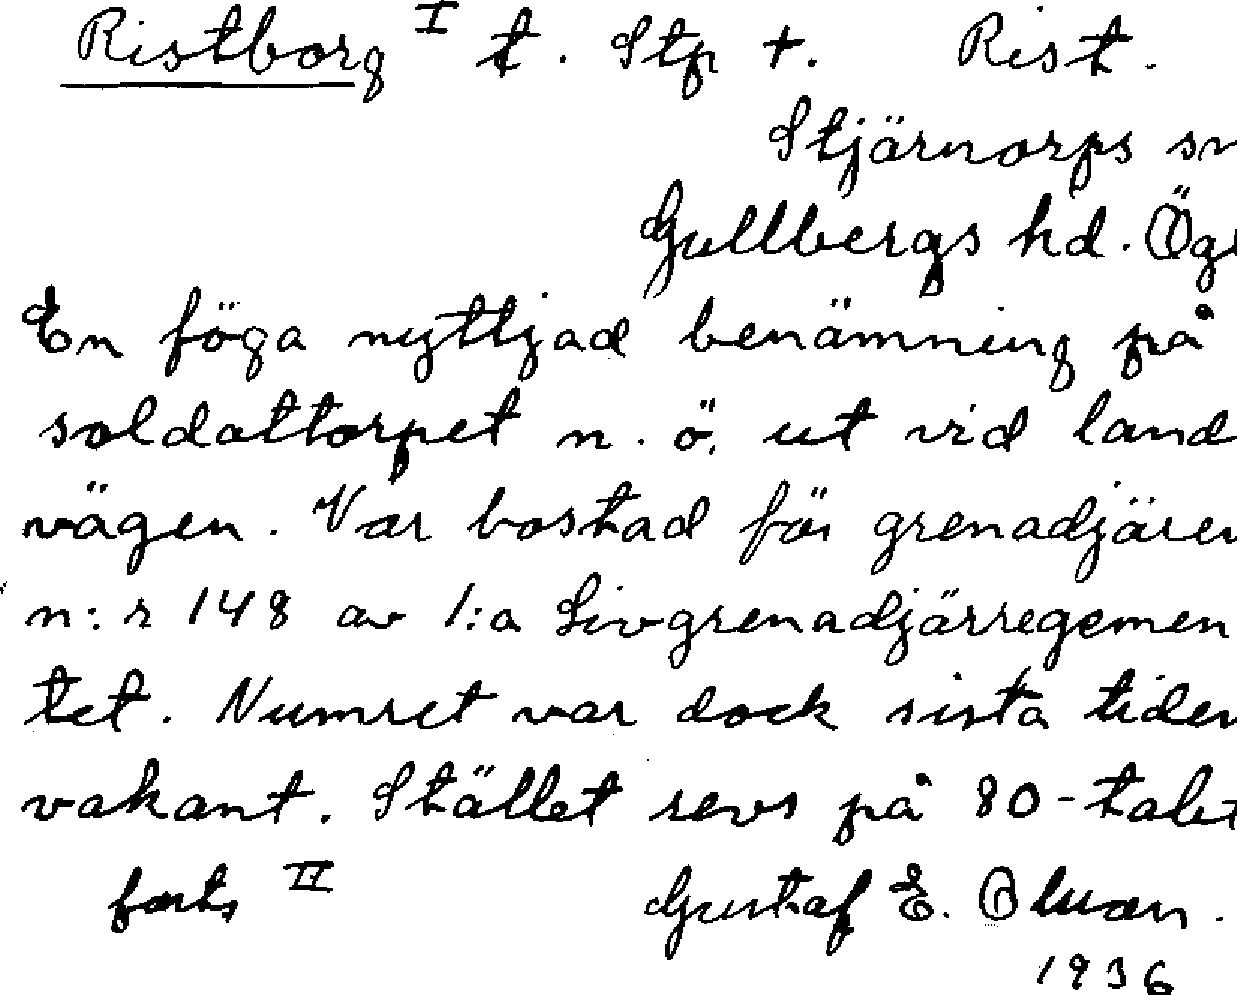 Ristborg I t. Stp +. Rist.
Stjärnorps sn
Gullbergs hd. Ög
En föga nyttjad benämning på
soldattorpet n. ö. ut vid land
vägen. Var bostad för grenadjären
n:r 148 av 1:a Livgrenadjärregemen
tet. Numret var dock sista tiden
vakant. Stället revs på 80-talet
forts II Gustaf E.
1936